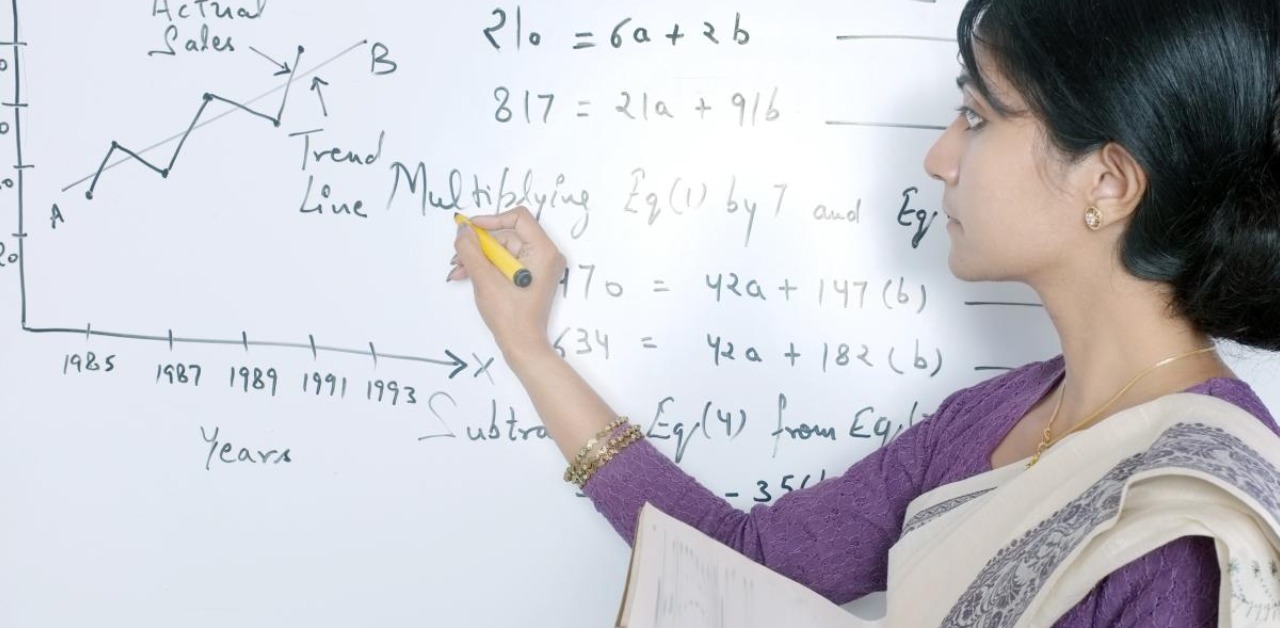 Actual
Sales
B
Trend
Line
A
20
1985 1987 1989 1991 1993 X
Years
210 = 6a + 2b
817 = 21a + 91b
Multiplying Eq(1) by 7 and Eq
70 = 42a + 147(b)
634 = 42a + 182(b)
Eq(4) from Eq
- 35